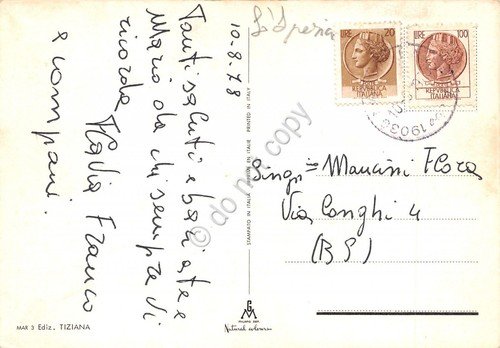 10-8-78
Tanti saluti e baci a te e
Mario da chi sempre vi
ricorda Flavia Franco
e compani.
La Spezia
LIRE 20
REPUBBLICA
ITALIANA
LIRE 100
REPUBBLICA
ITALIANA
19038
Sing.ra Mancini Flora
Via Longhi 4
(BS)
© do not copy
STAMPATO IN ITALIA IMPRIMÉ EN ITALIE PRINTED IN ITALY
MAR 3 Ediz. TIZIANA
GM
Natural colour